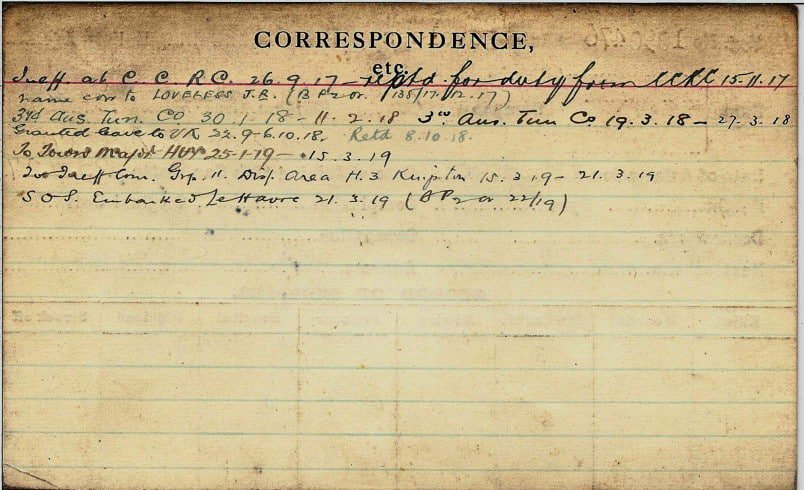 CORRESPONDENCE,
etc.
at C. C. R. C. 26.9.17 — for duty from CCRC 15.11.17
name corr to LOVELESS J.R. (B P2 or. 138/17. 12. 17)
3rd Aus. Tun. Co 30.1.18 — 11.2.18 3rd Aus. Tun Co 19.3.18 — 27.3.18
Granted leave to UK 22.9-6.10.18. Retd 8.10.18.
To Town Major HUY 25-1-19 — 15.3.19
Com. Grp. 11. Disp. Area H.3 15.3.19 — 21.3.19
S O S. Embarked Le Havre 21.3.19 (B P2 or 22/19)